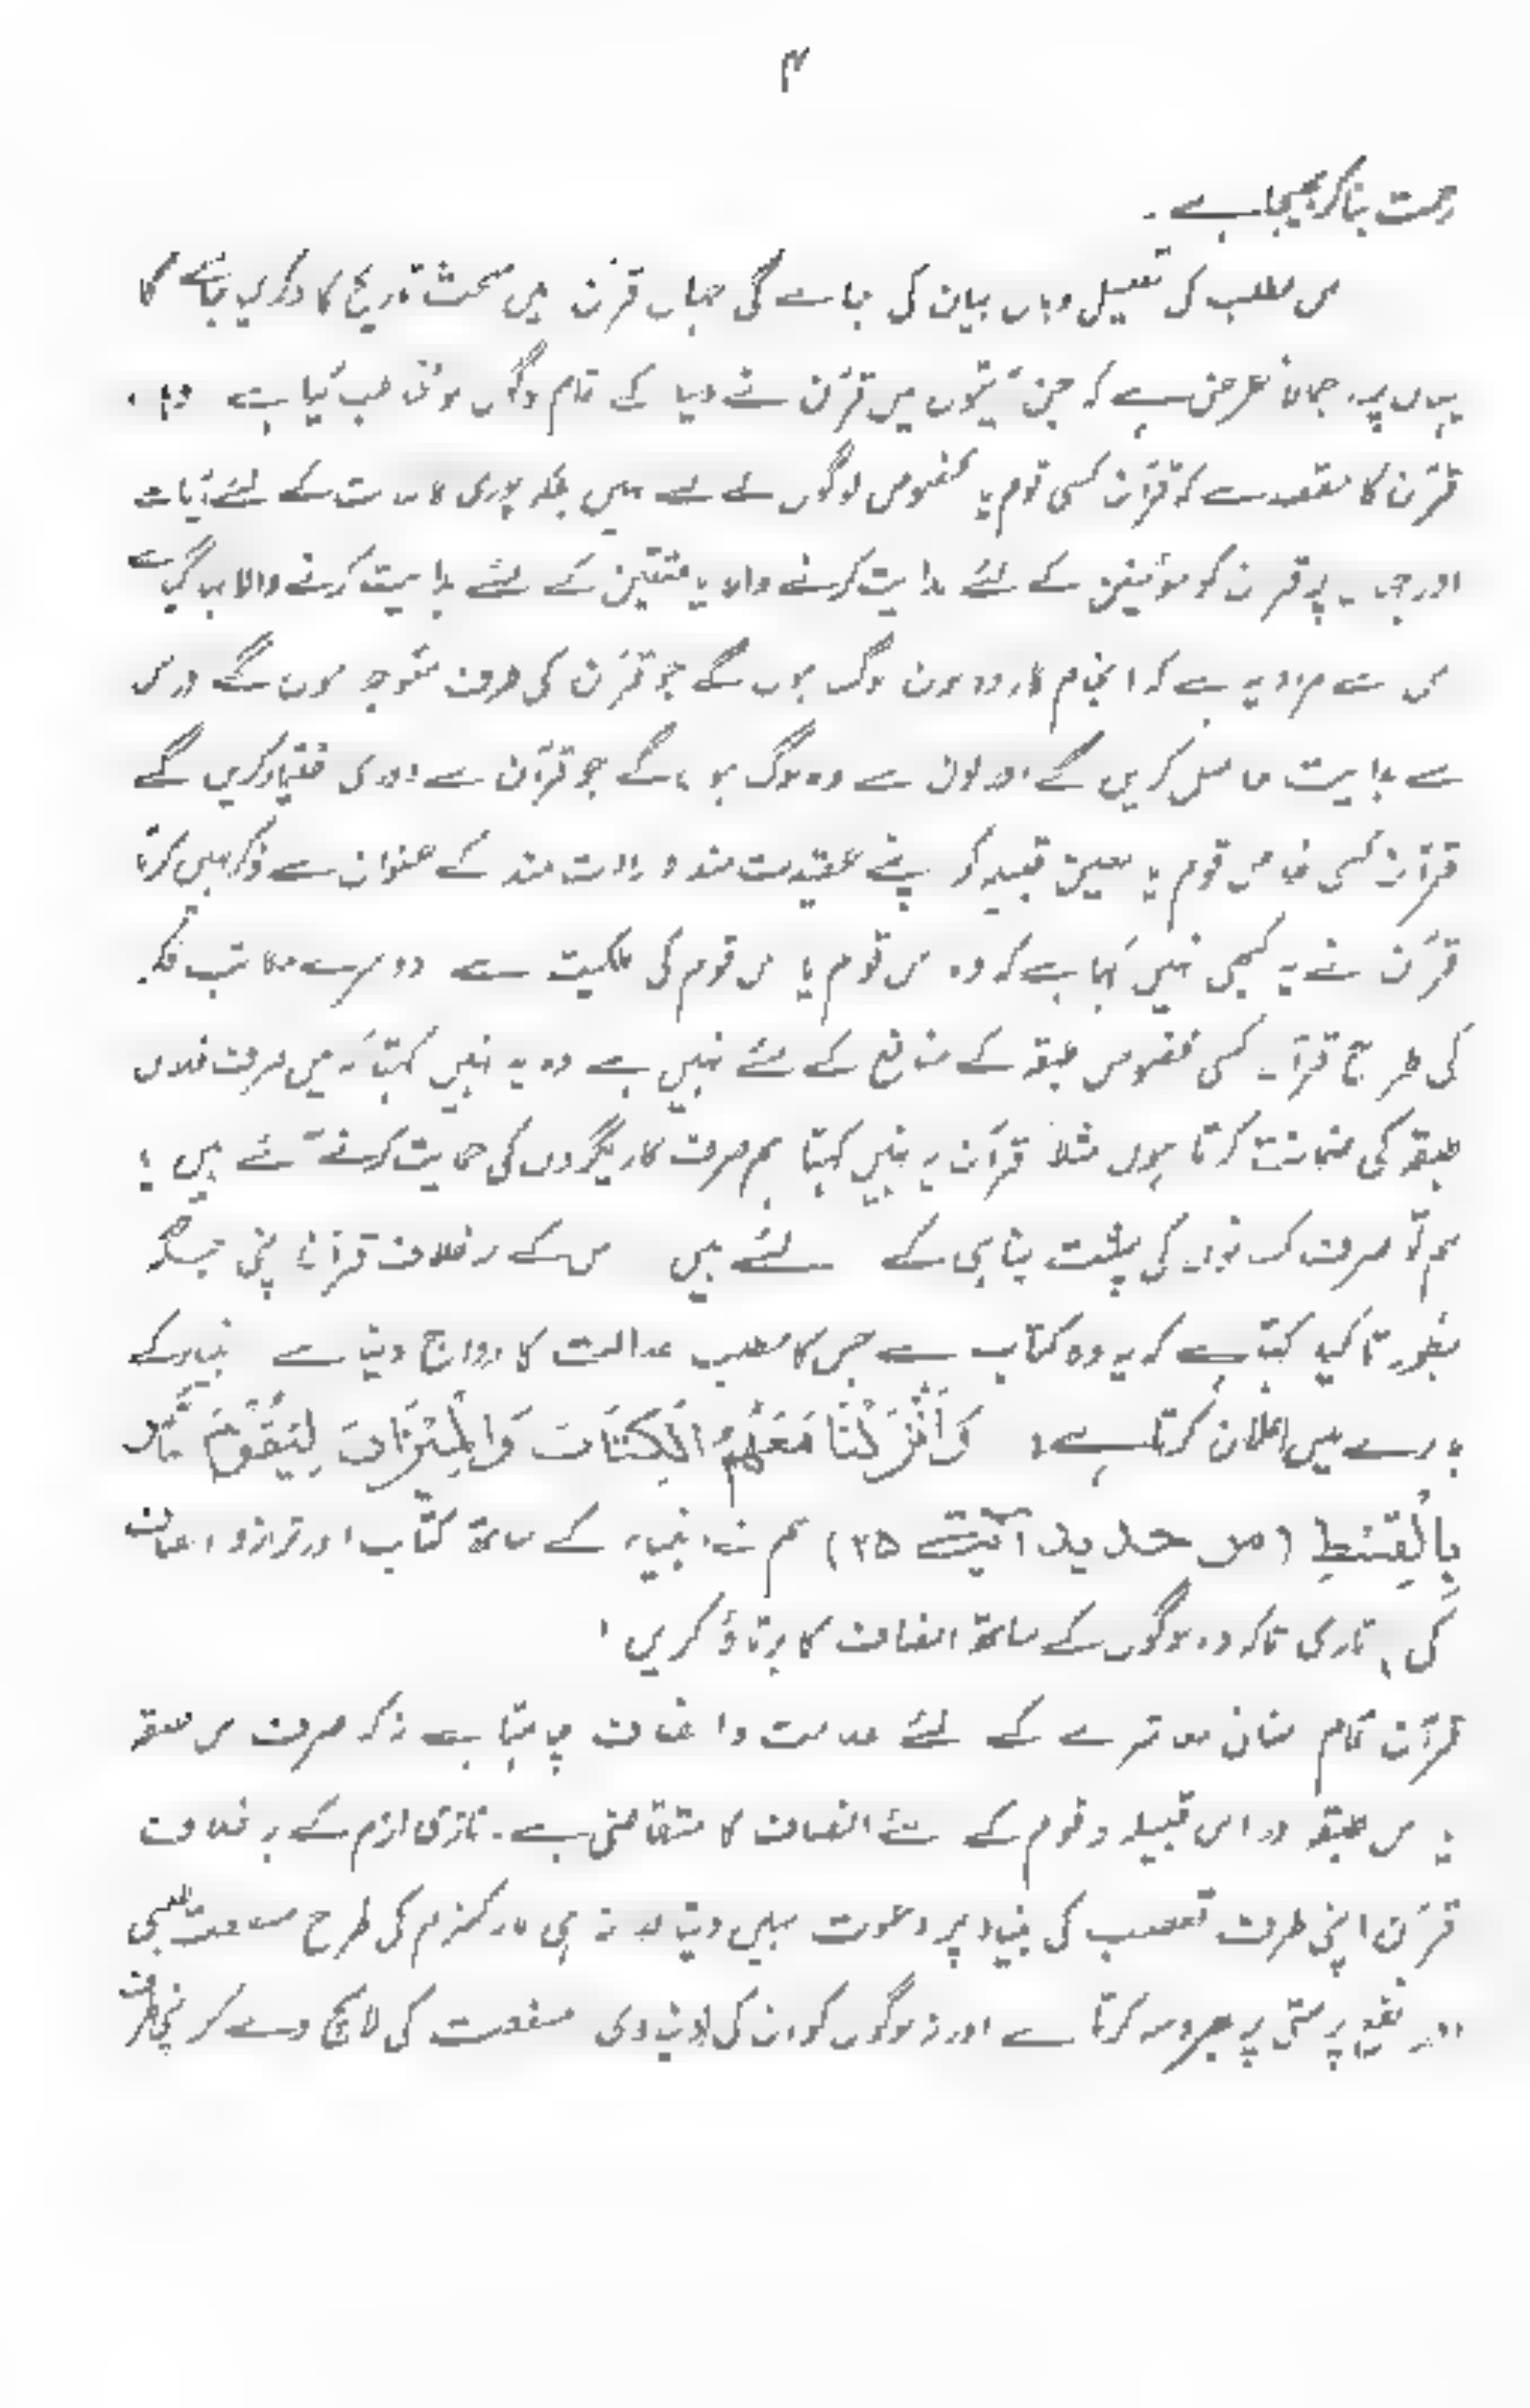 ۴
رحمت بنا کر بھیجا ہے۔
اس مطلب کی تفصیل وہاں بیان کی جائے گی جہاں قرآن میں بحث تاریخ کا ذکر کیا جائے گا
یہاں پر اجمالاً عرض ہے کہ جن آیتوں میں قرآن نے دنیا کے تمام لوگوں کو مخاطب کیا ہے وہاں
قرآن کا مقصد ہے کہ قرآن کسی قوم یا مخصوص لوگوں کے لئے نہیں بلکہ پوری کائنات کے لئے آیات
اور جہاں پر قرآن کو مومنین کے لئے ہدایت کرنے والا یا متقین کے لئے ہدایت کرنے والا کہا گیا ہے
اس سے مراد یہ ہے کہ انجام کار وہ کون لوگ ہوں گے جو قرآن کی طرف متوجہ ہوں گے اور اس
سے ہدایت حاصل کریں گے اور کون سے وہ لوگ ہوں گے جو قرآن سے دوری اختیار کریں گے
قرآن کسی خاص قوم یا معین قبیلہ کو اپنے عقیدت مند و ارادت مند کے عنوان سے ذکر نہیں کرتا
قرآن نے یہ کبھی نہیں کہا ہے کہ وہ اس قوم یا اس قوم کی ملکیت ہے دوسرے مکاتب فکر
کی طرح قرآن کسی مخصوص طبقہ کے منافع کے لئے نہیں ہے وہ یہ نہیں کہتا کہ میں صرف فلاں
طبقہ کی ضمانت کرتا ہوں مثلاً قرآن یہ نہیں کہتا ہم صرف کاریگروں کی حمایت کرنے آئے ہیں یا
ہم تو صرف کسانوں کی پشت پناہی کے لئے ہیں اس کے برخلاف قرآن اپنی جگہ
بطور تاکید کہتا ہے کہ یہ وہ کتاب ہے جس کا مطلب عدالت کا رواج دینا ہے انبیاء کے
بارے میں اعلان کرتا ہے: وَاَنْزَلْنَا مَعَهُمُ الْكِتَابَ وَالْمِيْزَانَ لِيَقُوْمَ النَّاسُ
بِالْقِسْطِ (س حدید آیت ۲۵) ہم نے انبیاء کے ساتھ کتاب اور ترازو انصاف
کی اتاری تاکہ وہ لوگوں کے ساتھ انصاف کا برتاؤ کریں۔
قرآن تمام انسان معاشرے کے لئے عدالت و انصاف چاہتا ہے نہ کہ صرف اس طبقہ
یا اس طبقہ اور اس قبیلہ و قوم کے لئے انصاف کا متقاضی ہے۔ نازی ازم کے برخلاف
قرآن اپنی طرف تعصب کی بنیاد پر دعوت نہیں دیتا اور نہ ہی مارکسزم کی طرح منفعت طلبی
اور نفع پرستی پر بھروسہ کرتا ہے اور نہ لوگوں کو ان کی دنیاوی منفعت کی لالچ دے کر اپنی طرف